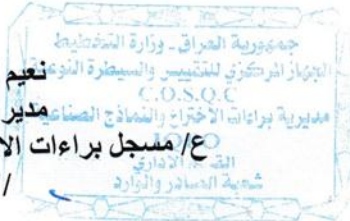 جمهورية العراق - وزارة التخطيط
الجهاز المركزي للتقييس والسيطرة النوعية
C.O.S.Q.C
مديرية براءات الاختراع والنماذج الصناعية
القسم الاداري
شعبة الصادر والوارد
نعيم
مدير
ع/ مسجل براءات الا
/